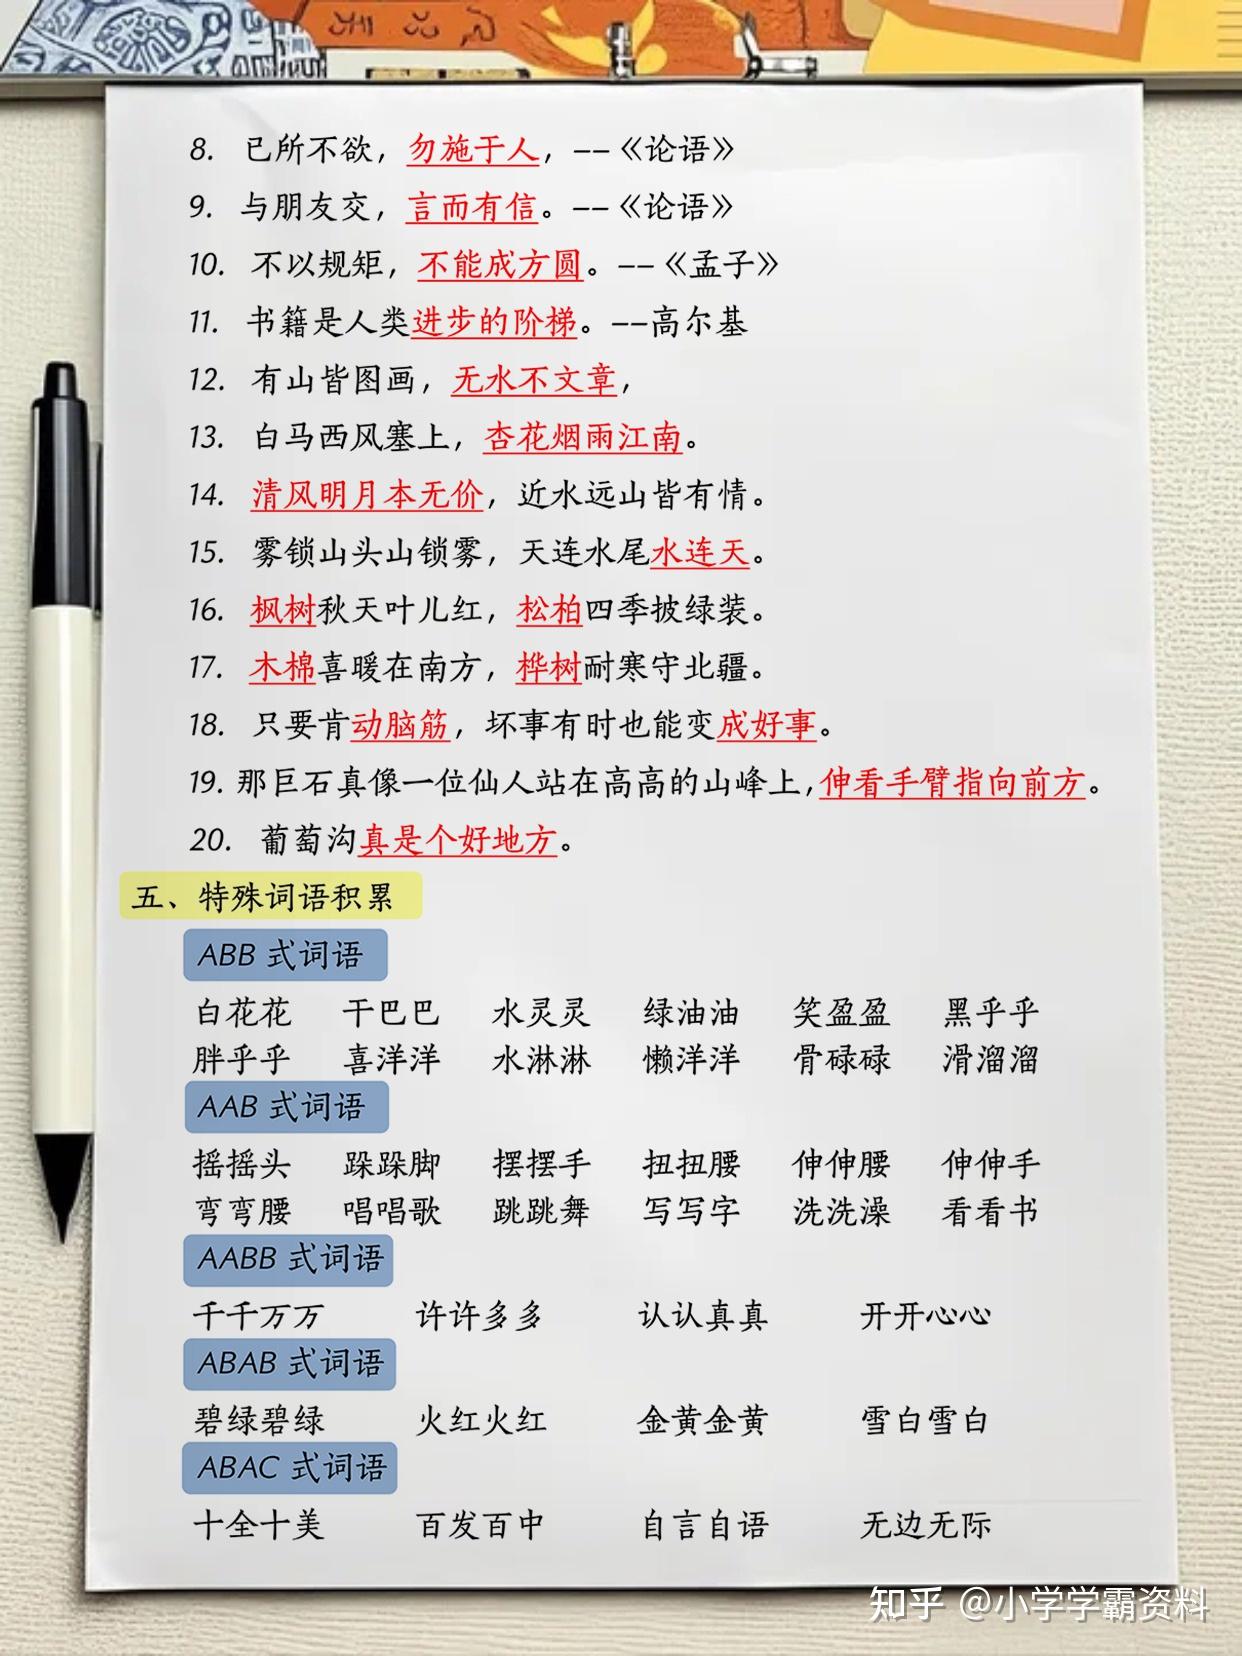 8. 已所不欲，勿施于人，--《论语》
9. 与朋友交，言而有信。--《论语》
10. 不以规矩，不能成方圆。--《孟子》
11. 书籍是人类进步的阶梯。--高尔基
12. 有山皆图画，无水不文章，
13. 白马西风塞上，杏花烟雨江南。
14. 清风明月本无价，近水远山皆有情。
15. 雾锁山头山锁雾，天连水尾水连天。
16. 枫树秋天叶儿红，松柏四季披绿装。
17. 木棉喜暖在南方，桦树耐寒守北疆。
18. 只要肯动脑筋，坏事有时也能变成好事。
19. 那巨石真像一位仙人站在高高的山峰上,伸看手臂指向前方。
20. 葡萄沟真是个好地方。
五、特殊词语积累
ABB 式词语
白花花 干巴巴 水灵灵 绿油油 笑盈盈 黑乎乎
胖乎乎 喜洋洋 水淋淋 懒洋洋 骨碌碌 滑溜溜
AAB 式词语
摇摇头 跺跺脚 摆摆手 扭扭腰 伸伸腰 伸伸手
弯弯腰 唱唱歌 跳跳舞 写写字 洗洗澡 看看书
AABB 式词语
千千万万 许许多多 认认真真 开开心心
ABAB 式词语
碧绿碧绿 火红火红 金黄金黄 雪白雪白
ABAC 式词语
十全十美 百发百中 自言自语 无边无际
知乎 @小学学霸资料